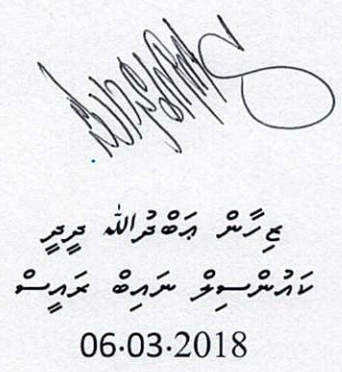 ޒިހާން ޢަބްދުﷲ ދީދީ
ކައުންސިލް ނައިބް ރައީސް
06.03.2018